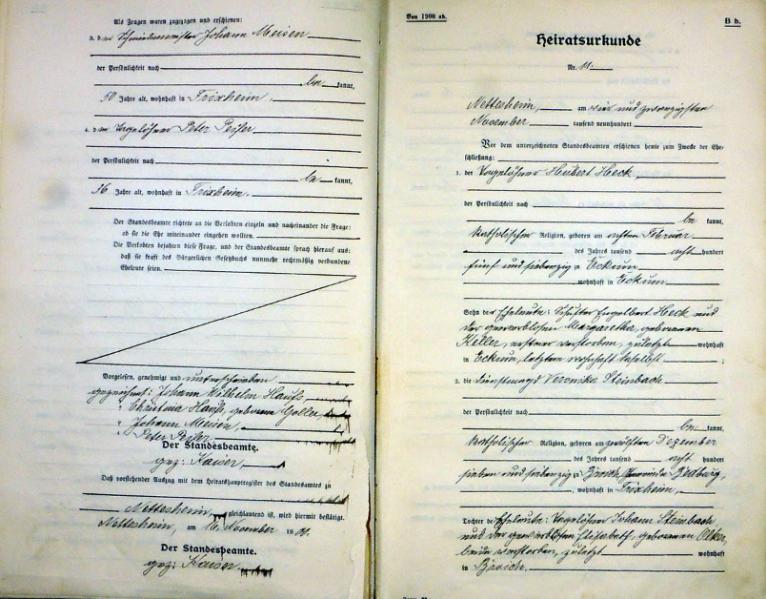 Als Zeugen waren zugezogen und erschienen:
3. der Schmiedemeister Johann Meisen
der Persönlichkeit nach
be kannt,
50 Jahre alt, wohnhaft in Frixheim
4. der Tagelöhner Peter Peiser
der Persönlichkeit nach
be kannt,
56 Jahre alt, wohnhaft in Frixheim.
Der Standesbeamte richtete an die Verlobten einzeln und nacheinander die Frage:
ob sie die Ehe miteinander eingehen wollen.
Die Verlobten bejahten diese Frage, und der Standesbeamte sprach hierauf aus:
daß sie kraft des Bürgerlichen Gesetzbuchs nunmehr rechtmäßig verbundene
Eheleute seien.
Vorgelesen, genehmigt und unterschrieben
gezeichnet: Johann Wilhelm
" Christina geborene
" Johann Meisen,
" Peter Peiser
Der Standesbeamte.
gez: Kaiser,
Daß vorstehender Auszug mit dem Heiratshauptregister des Standesamtes zu
Nettesheim, gleichlautend ist, wird hiermit bestätigt.
Nettesheim, am November 19
Der Standesbeamte.
gez: Kaiser.
Von 1900 ab.
B b.
Heiratsurkunde
Nr. 11.
Nettesheim, am und zwanzigsten
November tausend neunhundert
Vor dem unterzeichneten Standesbeamten erschienen heute zum Zwecke der Ehe-
schließung:
1. der Tagelöhner Hubert Heck
der Persönlichkeit nach
be kannt,
katholischer Religion, geboren am Februar
des Jahres tausend acht hundert
fünf und siebenzig in Eckum
wohnhaft in Eckum
Sohn der Eheleute: Schuster Engelbert Heck und
der gewerblosen Margaretha, geborenen
Keller, ersterer verstorben, zuletzt wohnhaft
in Eckum, letztere wohnhaft daselbst ;
2. die Dienstmagd Veronika Steinbach
der Persönlichkeit nach
be kannt,
katholischer Religion, geboren am zwölften Dezember
des Jahres tausend acht hundert
sieben und siebenzig in Broich, Gemeinde Bedburg,
, wohnhaft in Frixheim,
Tochter der Eheleute: Tagelöhner Johann Steinbach
und der gewerblosen Elisabeth, geborenen
beide verstorben, zuletzt wohnhaft
in Broich.